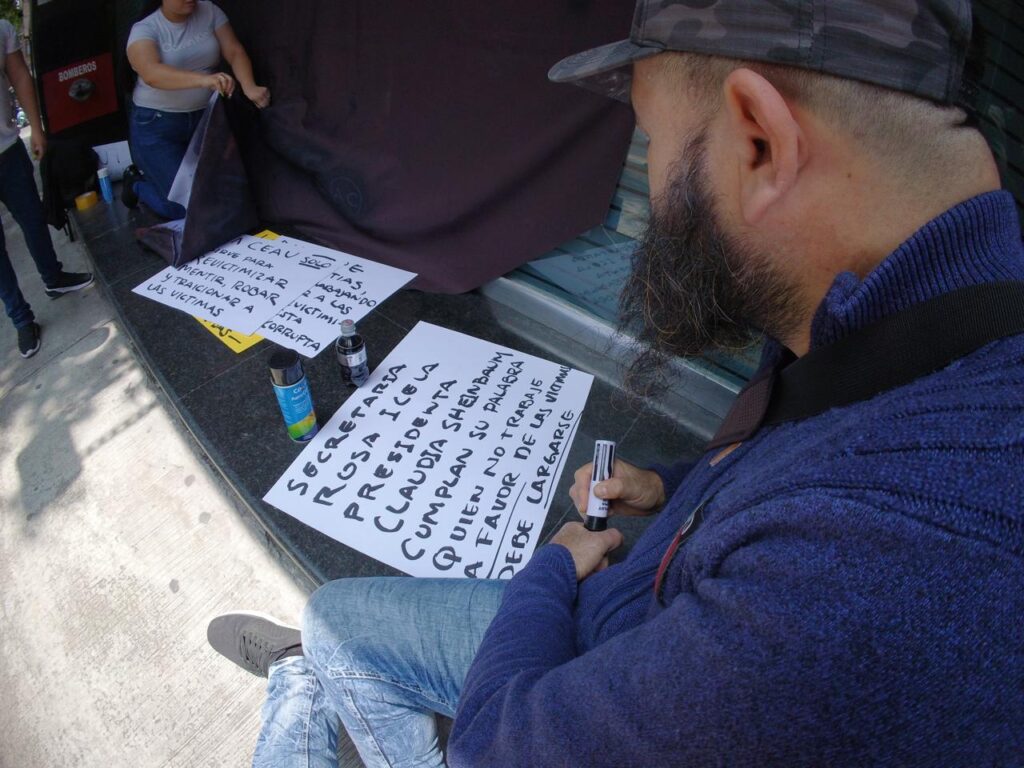 BOMBEROS
A CEAV SOLO
RVE PARA
EVICTIMIZAR
MENTIR, ROBAR
Y TRAICIONAR A
LAS VICTIMAS
TIAS
ABAJANDO
A LAS
VICTIMI
STA
CORRUPTA
SECRETARIA
ROSA ICELA
PRESIDENTA
CLAUDIA SHEINBAUM
CUMPLAN SU PALABRA
QUIEN NO TRABAJE
A FAVOR DE LAS VICTIMAS
DEBE LARGARSE